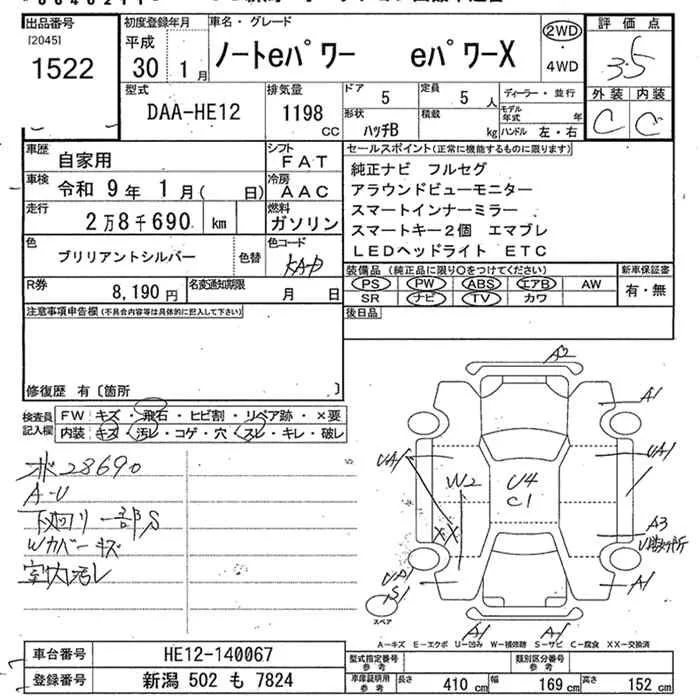 出品番号 初度登録年月 車名・グレード 評価点
[2045] 平成 2WD 3.5
1522 30 1月 ノートeパワー eパワーX ・4WD 外装 内装
型式 排気量 ドア 5 定員 5人 ディーラー・並行 C C
DAA-HE12 1198 cc 形状 ハッチB 積載 kg モデル年式 年
ハンドル 左・右
車歴 自家用 シフト FAT セールスポイント(正常に機能するものに限ります)
車検 令和 9年 1月( 日) 冷房 AAC 純正ナビ フルセグ
アラウンドビューモニター
走行 2万8千690 km 燃料 ガソリン スマートインナーミラー
スマートキー2個 エマブレ
色 ブリリアントシルバー 色替 色コード KAD LEDヘッドライト ETC
装備品(純正品に限り○をつけてください) 新車保証書
R券 8,190円 名変通知期限 月 日 PS PW ABS エアB AW 有・無
SR ナビ TV カワ
注意事項申告欄(不具合内容等は具体的に記入して下さい) 後日品
修復歴 有〔箇所 〕
検査員記入欄 FW キズ・飛石・ヒビ割・リペア跡・×要
内装 キズ・汚レ・コゲ・穴・スレ・キレ・破レ
28690
A-U
下回リ一部S
Wカバーキズ
室内汚レ
A2
A1
UA1 UA1
W2 U4
C1
A3
XX
S1 A1
スペア
A1 A1
A-キズ E-エクボ U-凹み W-補修跡 S-サビ C-腐食 XX-交換済
車台番号 HE12-140067 型式指定番号 参考 類別区分番号 参考
登録番号 新潟 502 も 7824 車庫証明用 参考 長さ 410 cm 幅 169 cm 高さ 152 cm